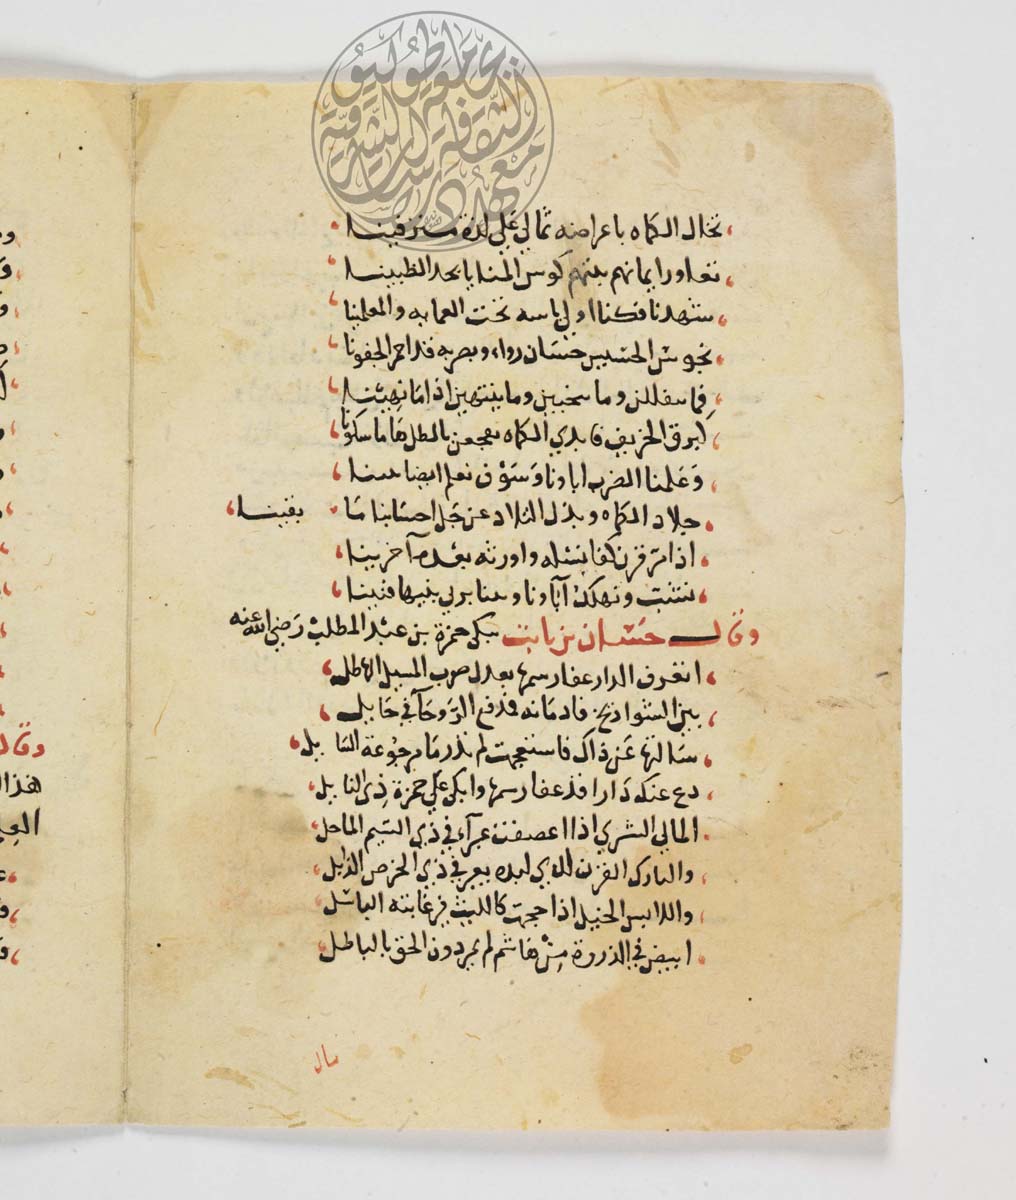 تخال الكماه باعراضه ثمالي علي لذة منزفينا
تعاور ايمانهم بينهم كوس المنايا بحد الظبينا
شهدنا فكنا اولي باسه تحت العمايه والمعلمينا
بخرس الحسيس حسان رواء وبصريه قد اجم الجفونا
فما ينفللن وما ينحنين وما ينتهين اذا ما نهينا
كبرق الخريف بايدي الكماه يفجعن بالطل هاما سكونا
وعلمنا الضرب اباونا وسوف نعلم ايضا بنينا
جلاد الكماه وبذل التلاد عن جل احسابنا ما بقينا
اذا مر قرن كفا نسله واورثه بعده اخرينا
نشب وتهلك آباونا وبينا نربي بنيها فنينا
وقال حسان بن ثابت يبكي حمزة بن عبد المطلب رضي الله عنه
اتعرف الدار عفا رسمها بعدك صوب المسبل الهاطل
بين السواديح فادمانه فمدفع الروحآ في حايل
سالتها عن ذاك فاستعجمت لم تدر ما مرجوعة السايل
دع عنك دارا قد عفا رسمها وابكي علي حمزة ذي النايل
المالي الشيزي اذا اعصفت غبرآء في ذي الشبم الماحل
والتارك القرن لذي لبده يعثر في ذي الخرص الذابل
واللابس الخيل اذا احجمت كالليث في غابته الباسل
ابيض في الذروة من هاشم لم يمر دون الحق بالباطل
مال